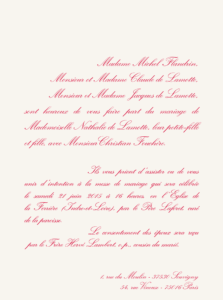 Madame Michel Flanchin,
Monsieur et Madame Claude de Lamotte,
Monsieur et Madame Jacques de Lamotte,
sont heureux de vous faire part du mariage de
Mademoiselle Nathalie de Lamotte, leur petite-fille
et fille, avec Monsieur Christian Fouchère.
Ils vous prient d'assister ou de vous
unir d'intention à la messe de mariage qui sera célébrée
le samedi 21 juin 2013 à 16 heures, en l'Église de
la Ferrière (Indre-et-Loire), par le Père Laforêt, curé
de la paroisse.
Le consentement des époux sera reçu
par le Frère Hervé Lambert, o.p., cousin du marié.
1, rue du Moulin - Savigny
24, rue Vavin - 75006 Paris